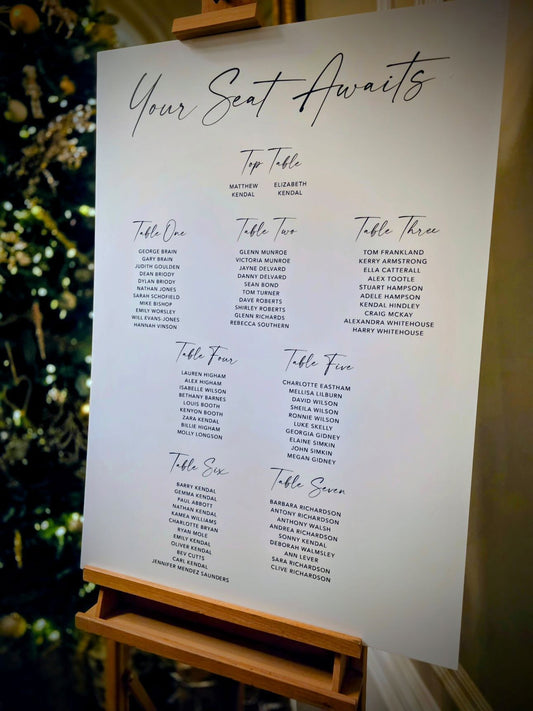 Your Seat Awaits
Top Table
MATTHEW KENDAL
ELIZABETH KENDAL
Table One
GEORGE BRAIN
GARY BRAIN
JUDITH GOULDEN
DEAN BRIODY
DYLAN BRIODY
NATHAN JONES
SARAH SCHOFIELD
MIKE BISHOP
EMILY WORSLEY
WILL EVANS-JONES
HANNAH VINSON
Table Two
GLENN MUNROE
VICTORIA MUNROE
JAYNE DELVARD
DANNY DELVARD
SEAN BOND
TOM TURNER
DAVE ROBERTS
SHIRLEY ROBERTS
GLENN RICHARDS
REBECCA SOUTHERN
Table Three
TOM FRANKLAND
KERRY ARMSTRONG
ELLA CATTERALL
ALEX TOOTLE
STUART HAMPSON
ADELE HAMPSON
KENDAL HINDLEY
CRAIG MCKAY
ALEXANDRA WHITEHOUSE
HARRY WHITEHOUSE
Table Four
LAUREN HIGHAM
ALEX HIGHAM
ISABELLE WILSON
BETHANY BARNES
LOUIS BOOTH
KENYON BOOTH
ZARA KENDAL
BILLIE HIGHAM
MOLLY LONGSON
Table Five
CHARLOTTE EASTHAM
MELLISA LILBURN
DAVID WILSON
SHEILA WILSON
RONNIE WILSON
LUKE SKELLY
GEORGIA GIDNEY
ELAINE SIMKIN
JOHN SIMKIN
MEGAN GIDNEY
Table Six
BARRY KENDAL
GEMMA KENDAL
PAUL ABBOTT
NATHAN KENDAL
KAMEA WILLIAMS
CHARLOTTE BRYAN
RYAN MOLE
EMILY KENDAL
OLIVER KENDAL
BEV CUTTS
CARL KENDAL
JENNIFER MENDEZ SAUNDERS
Table Seven
BARBARA RICHARDSON
ANTONY RICHARDSON
ANTHONY WALSH
ANDREA RICHARDSON
SONNY KENDAL
DEBORAH WALMSLEY
ANN LEVER
SARA RICHARDSON
CLIVE RICHARDSON